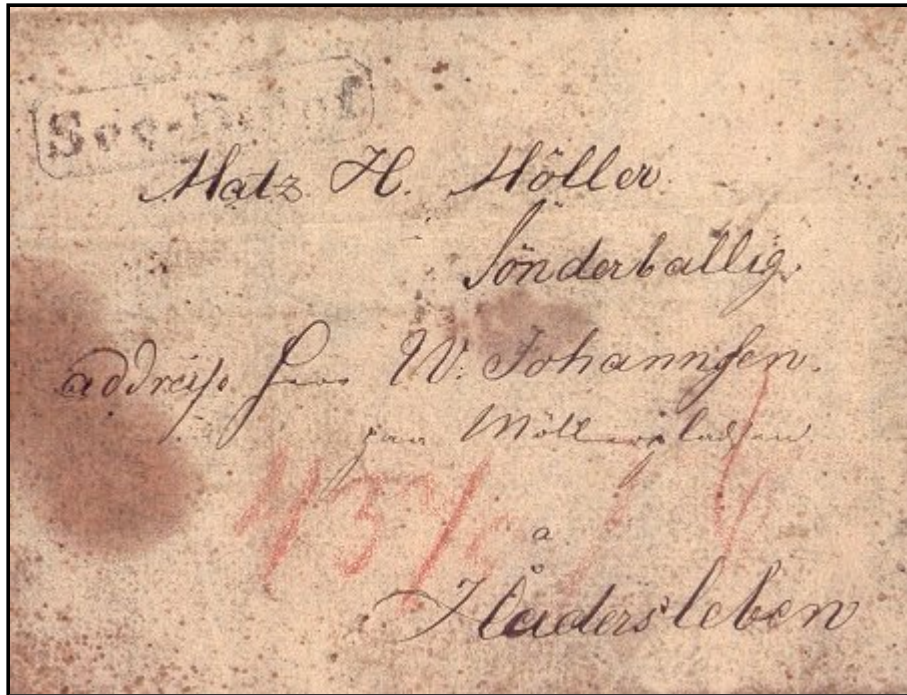 See-Brief
Matz H. Möller.
Sönderballig.
addresse Herr W. Johannsen.
paa Möllerpladsen
a.
Hadersleben